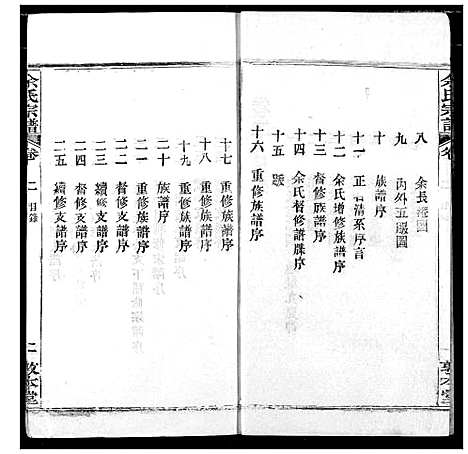 余氏宗譜
卷
敦本堂
八 余長港圖
九 內外五服圖
十 族譜序
十一 正本清系序言
十二 余氏增修族譜序
十三 督修族譜序
十四 余氏督修譜牒序
十五 題
十六 重修族譜序
十七 重修族譜序
十八 重修族譜序
十九 重修族譜序
二十 族譜序
二一 重修族譜序
二二 督修支譜序
二三 續修支譜序
二四 督修支譜序
二五 續修支譜序
余氏宗譜
卷一
目錄
二
敦本堂